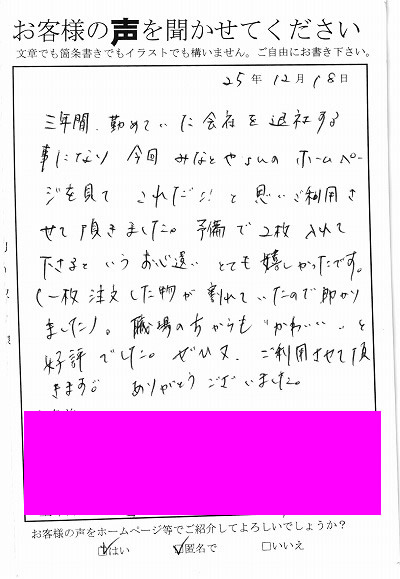 お客様の声を聞かせてください
文章でも箇条書きでもイラストでも構いません。ご自由にお書き下さい。
25年12月18日
三年間、勤めていた会社を退社する
事になり 今回 みなとやsunのホームペー
ジを見て これだ!! と思いご利用さ
せて頂きました。予備で2枚入れて
下さるというお心遣い とても嬉しかったです。
(一枚注文した物が割れていたので助かり
ました)。職場の方からも"かわいい"と
好評でした。ぜひ又、ご利用させて頂
きます。 ありがとうございました。
お客様の声をホームページ等でご紹介してよろしいでしょうか?
☑はい ☑匿名で □いいえ